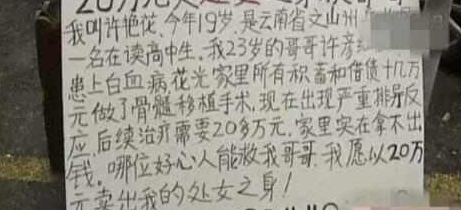 20万元
我叫许艳花,今年19岁,是云南省文山州
一名在读高中生。我23岁的哥哥许彦
患上白血病花光家里所有积蓄和借债十几万
元做了骨髓移植手术,现在出现严重排异反
应后续治疗需要20多万元,家里实在拿不出
钱,哪位好心人能救我哥哥我愿以20万
元卖出我的处女之身!